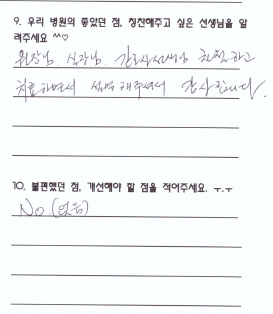 9. 우리 병원의 좋았던 점, 칭찬해주고 싶은 선생님을 알
려주세요 ^^♡
원장님, 실장님, 간호사선생님 친절하고
치료하면서 설명해주셔서 감사합니다.
10. 불편했던 점, 개선해야 할 점을 적어주세요. ㅜ.ㅜ
No (없음)